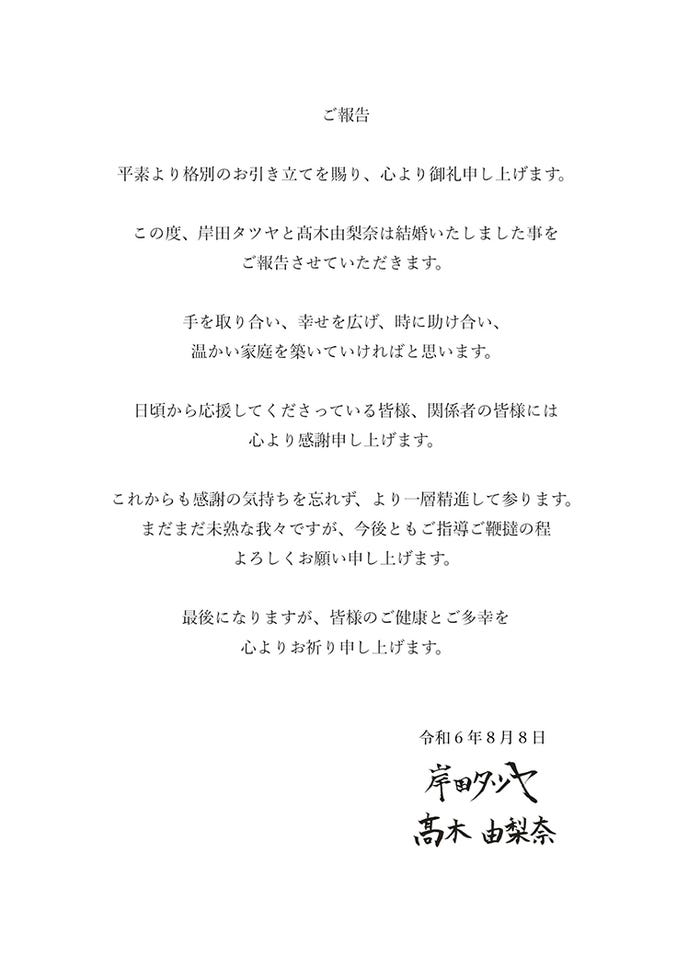 ご報告
平素より格別のお引き立てを賜り、心より御礼申し上げます。
この度、岸田タツヤと髙木由梨奈は結婚いたしました事を
ご報告させていただきます。
手を取り合い、幸せを広げ、時に助け合い、
温かい家庭を築いていければと思います。
日頃から応援してくださっている皆様、関係者の皆様には
心より感謝申し上げます。
これからも感謝の気持ちを忘れず、より一層精進して参ります。
まだまだ未熟な我々ですが、今後ともご指導ご鞭撻の程
よろしくお願い申し上げます。
最後になりますが、皆様のご健康とご多幸を
心よりお祈り申し上げます。
令和６年８月８日
岸田タツヤ
髙木 由梨奈